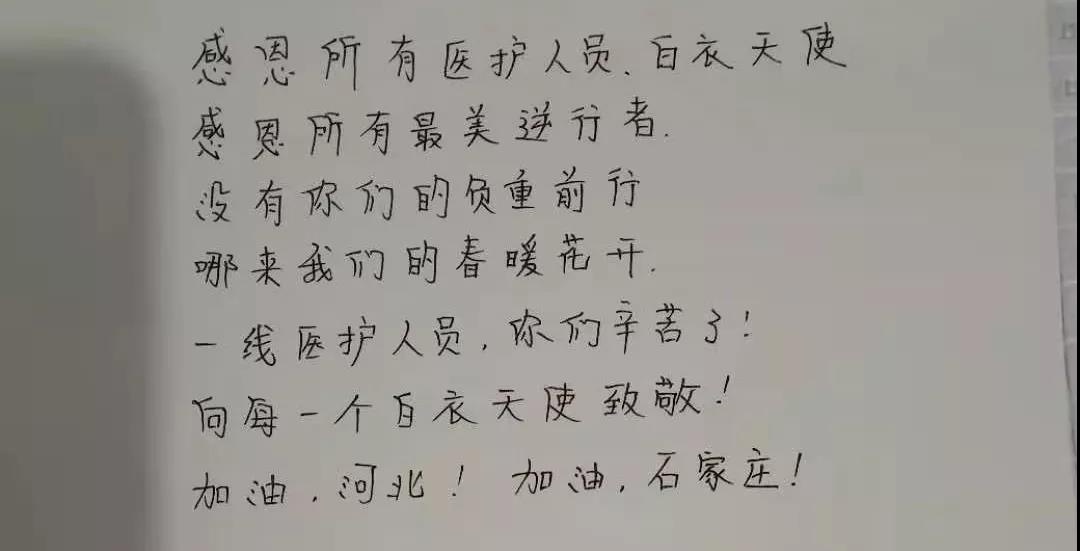 感恩所有医护人员、白衣天使
感恩所有最美逆行者.
没有你们的负重前行
哪来我们的春暖花开.
一线医护人员,你们辛苦了!
向每一个白衣天使致敬!
加油,河北! 加油,石家庄!